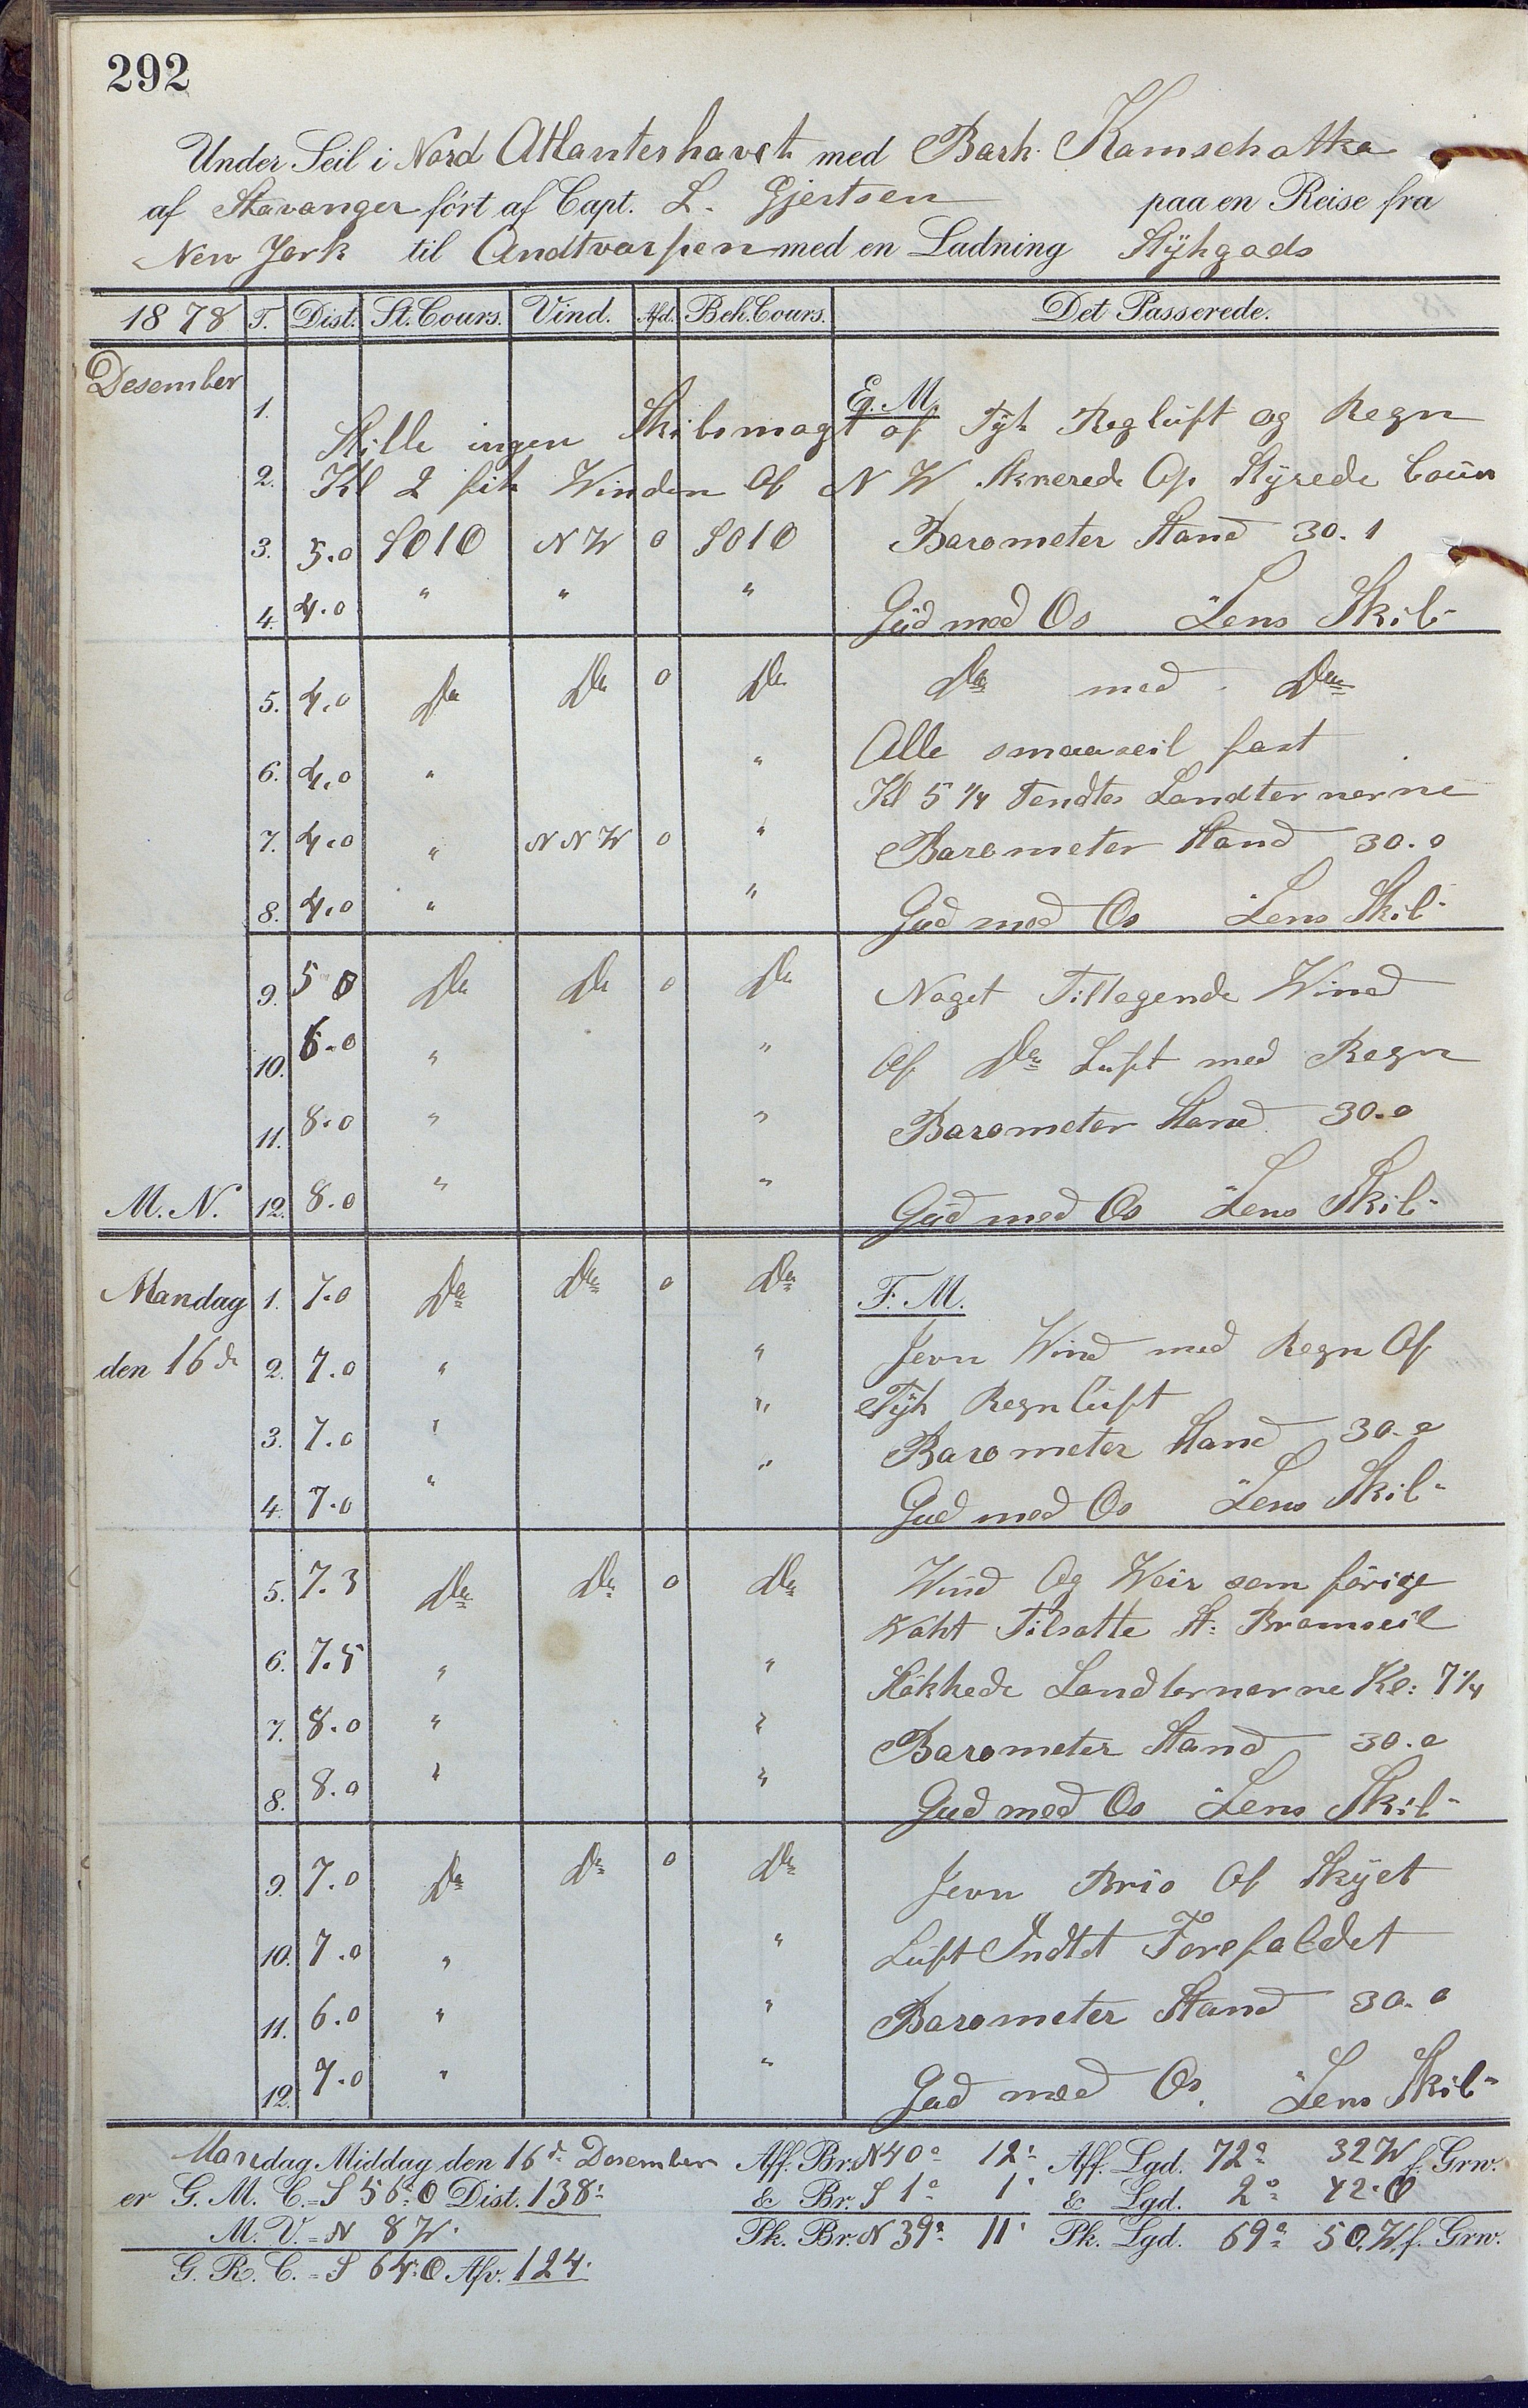 292
Under Seil i Nord Atlanterhavet med Bark Kamschatka
af Stavanger fört af Capt. L. Gjertsen paa en Reise fra
New York til Andtvarpen med en Ladning Stÿkgods
1878 T. Dist. St. Cours. Vind. Afd. Beh. Cours. Det Passerede.
Desember
E. M.
1. Stille ingen Skibsmagt af Tÿk Regluft og Regn
2. Kl 2 fik Winden Af N W Skverede Op Stÿrede Cours
3. 5.0 SO1O NW 0 SO1O Barometer Stand 30.1
4. 4.0 " " " Gud med Os Lens Skib
5. 4.0 Do Do 0 Do Do med Do
Alle smaaseil fast
6. 4.0 " "
Kl 5 1/4 Tendtes Landternerne
7. 4.0 " NNW 0 " Barometer Stand 30.0
8. 4.0 " " Gud med Os Lens Skib
9. 5 0 Do Do 0 Do Noget Tillegende Wind
10. 6.0 " " Af Do Luft med Regn
11. 8.0 " " Barometer Stand 30.0
M. N. 12. 8.0 " " Gud med Os Lens Skib
Mandag 1. 7.0 Do Do 0 Do F. M.
den 16de 2. 7.0 " " Jevn Wind med Regn Af
Tÿk Regnluft
3. 7.0 " " Barometer Stand 30.0
4. 7.0 " " Gud med Os Lens Skib
5. 7.3 Do Do 0 Do Wind Og Weir som förige
Wakt Tilsatte St: Bramseil
6. 7.5 " "
Slökkede Landternerne Kl: 7 1/4
7. 8.0 " " Barometer Stand 30.0
8. 8.0 " " Gud med Os Lens Skib
9. 7.0 Do Do 0 Do Jevn Bris Af Skÿet
10. 7.0 " " Luft Indtet Forefaldet
11. 6.0 " " Barometer Stand 30.0
12. 7.0 " " Gud med Os. Lens Skib
Mandag Middag den 16de Desember Aff. Br. N 40° 12' Aff. Lgd. 72° 32 W f. Grw.
er G. M. C. = S 56° O Dist. 138' & Br. S 1° 1' & Lgd. 2° 42' O
M. V. = N 8 W. Pk. Br. N 39° 11' Pk. Lgd. 69° 50. W. f. Grw.
G. R. C. = S 64° O Afv. 124'